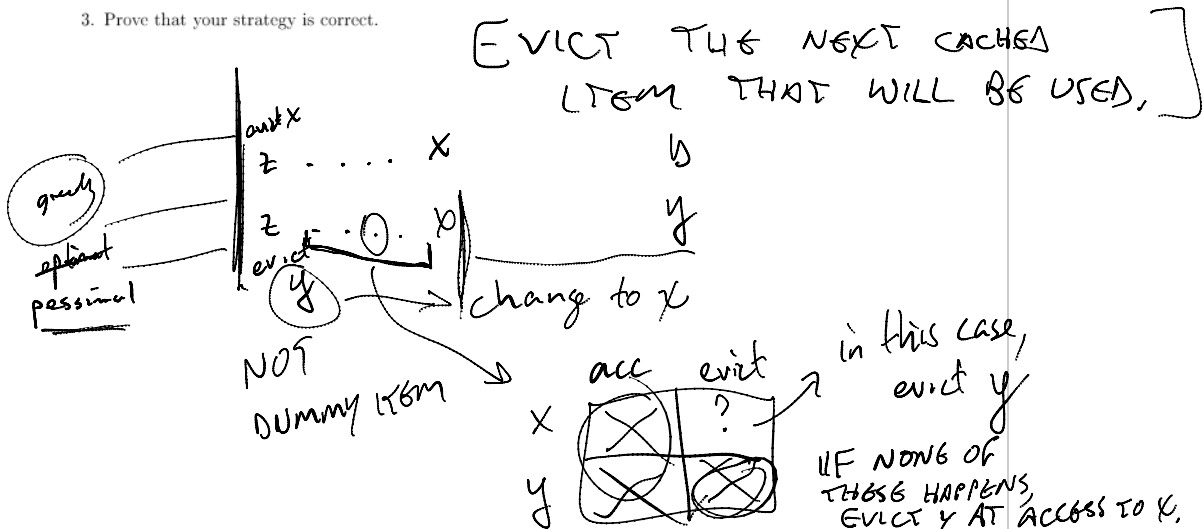 3. Prove that your strategy is correct.
EVICT THE NEXT CACHED
ITEM THAT WILL BE USED.
evict X
z . . . . X b
greedy
z . . . . X y
optimal
evict
y
pessimal
change to x
NOT
DUMMY ITEM
in this case,
evict y
acc evict
x ?
y
IF NONE OF
THESE HAPPENS,
EVICT Y AT ACCESS TO X.